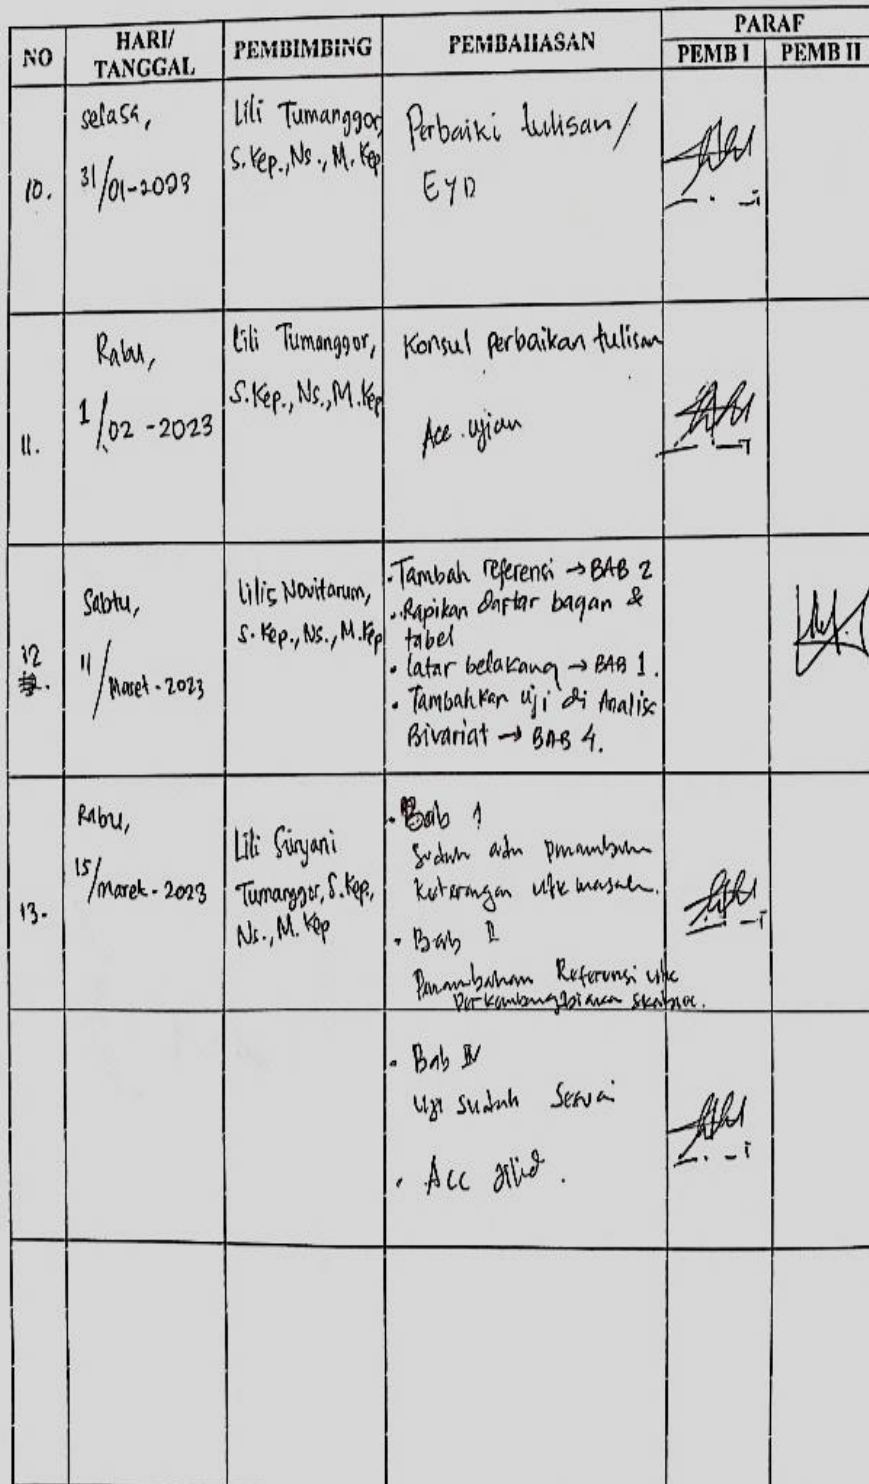 NO
HARI/
TANGGAL
PEMBIMBING
PEMBAHASAN
PARAF
PEMB I
PEMB II
10.
selasa,
31/01-2023
Lili Tumanggor,
S.Kep., Ns., M.Kep
Perbaiki tulisan/
EYD
11.
Rabu,
1/02-2023
Lili Tumanggor,
S.Kep., Ns., M.Kep
Konsul perbaikan tulisan
Acc ujian
12.
Sabtu,
11/Maret-2023
Lilis Novitarum,
S.Kep., Ns., M.Kep
• Tambah referensi → BAB 2
• Rapikan daftar bagan &
tabel
• latar belakang → BAB 1.
• Tambahkan uji di Analisc
Bivariat → BAB 4.
13.
Rabu,
15/maret-2023
Lili Suryani
Tumanggor, S.Kep.,
Ns., M.Kep
• Bab 1
Sudah ada penambahan
keterangan utk masalah.
• Bab II
Penambahan Referensi utk
• Bab IV
Uji sudah Sesuai
• Acc jilid.